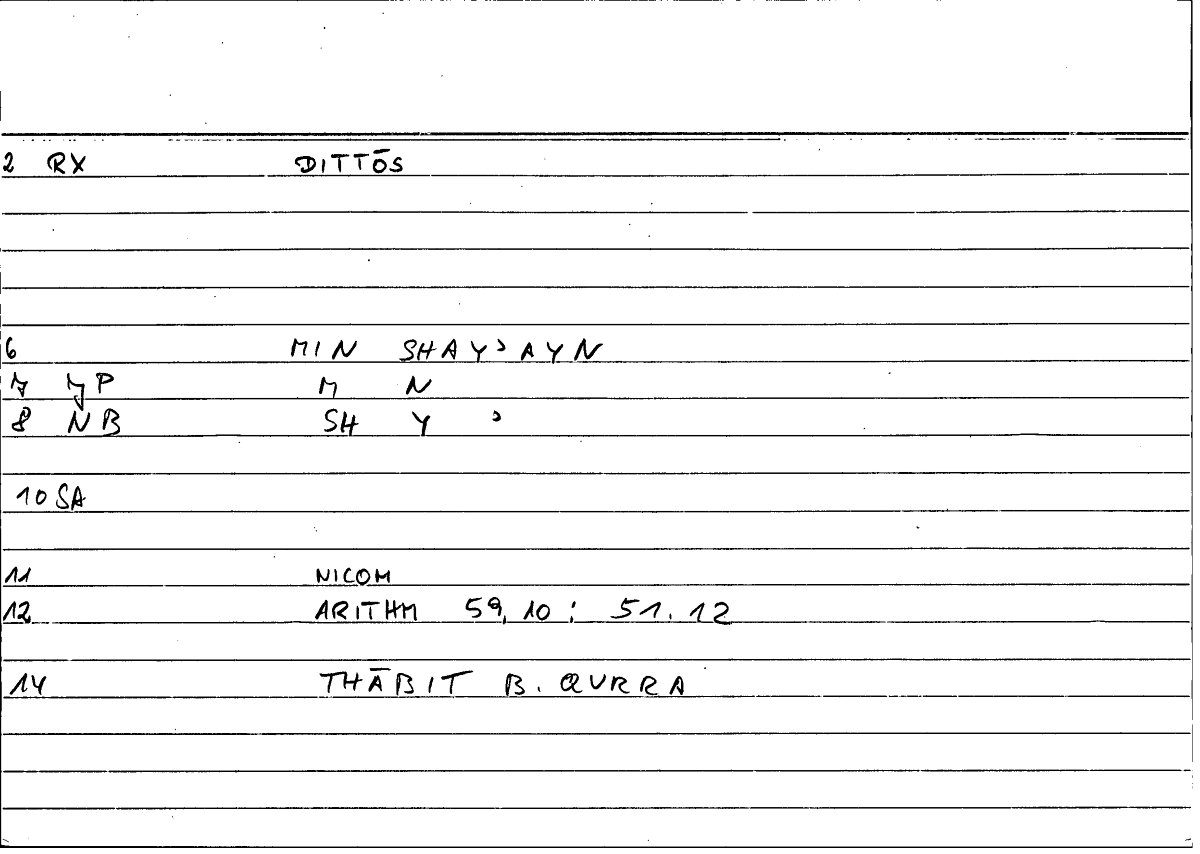 2 RX DITTŌS
6 MIN SHAYʾAYN
7 JP M N
8 NB SH Y ʾ
10 SA
11 NICOM
12 ARITHM 59,10 : 51.12
14 THĀBIT B. QURRA